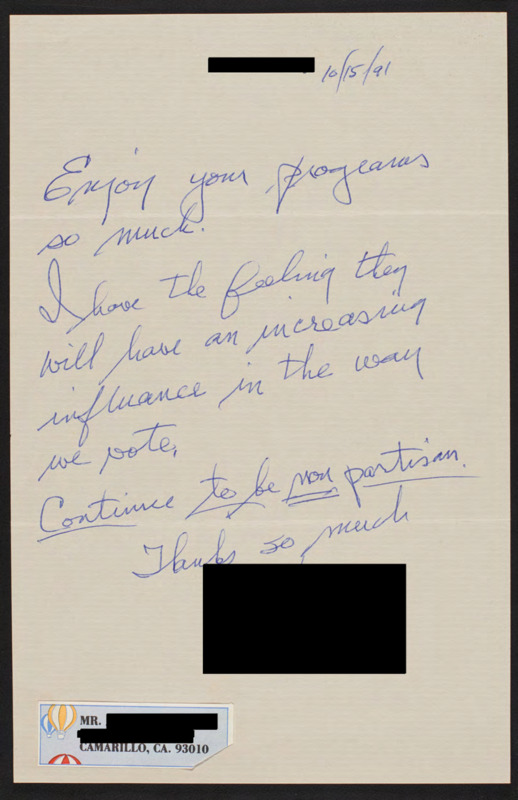 10/15/91
Enjoy your programs
so much.
I have the feeling they
will have an increasing
influance in the way
we vote.
Continue to be non partisan.
Thanks so much
MR.
CAMARILLO, CA. 93010